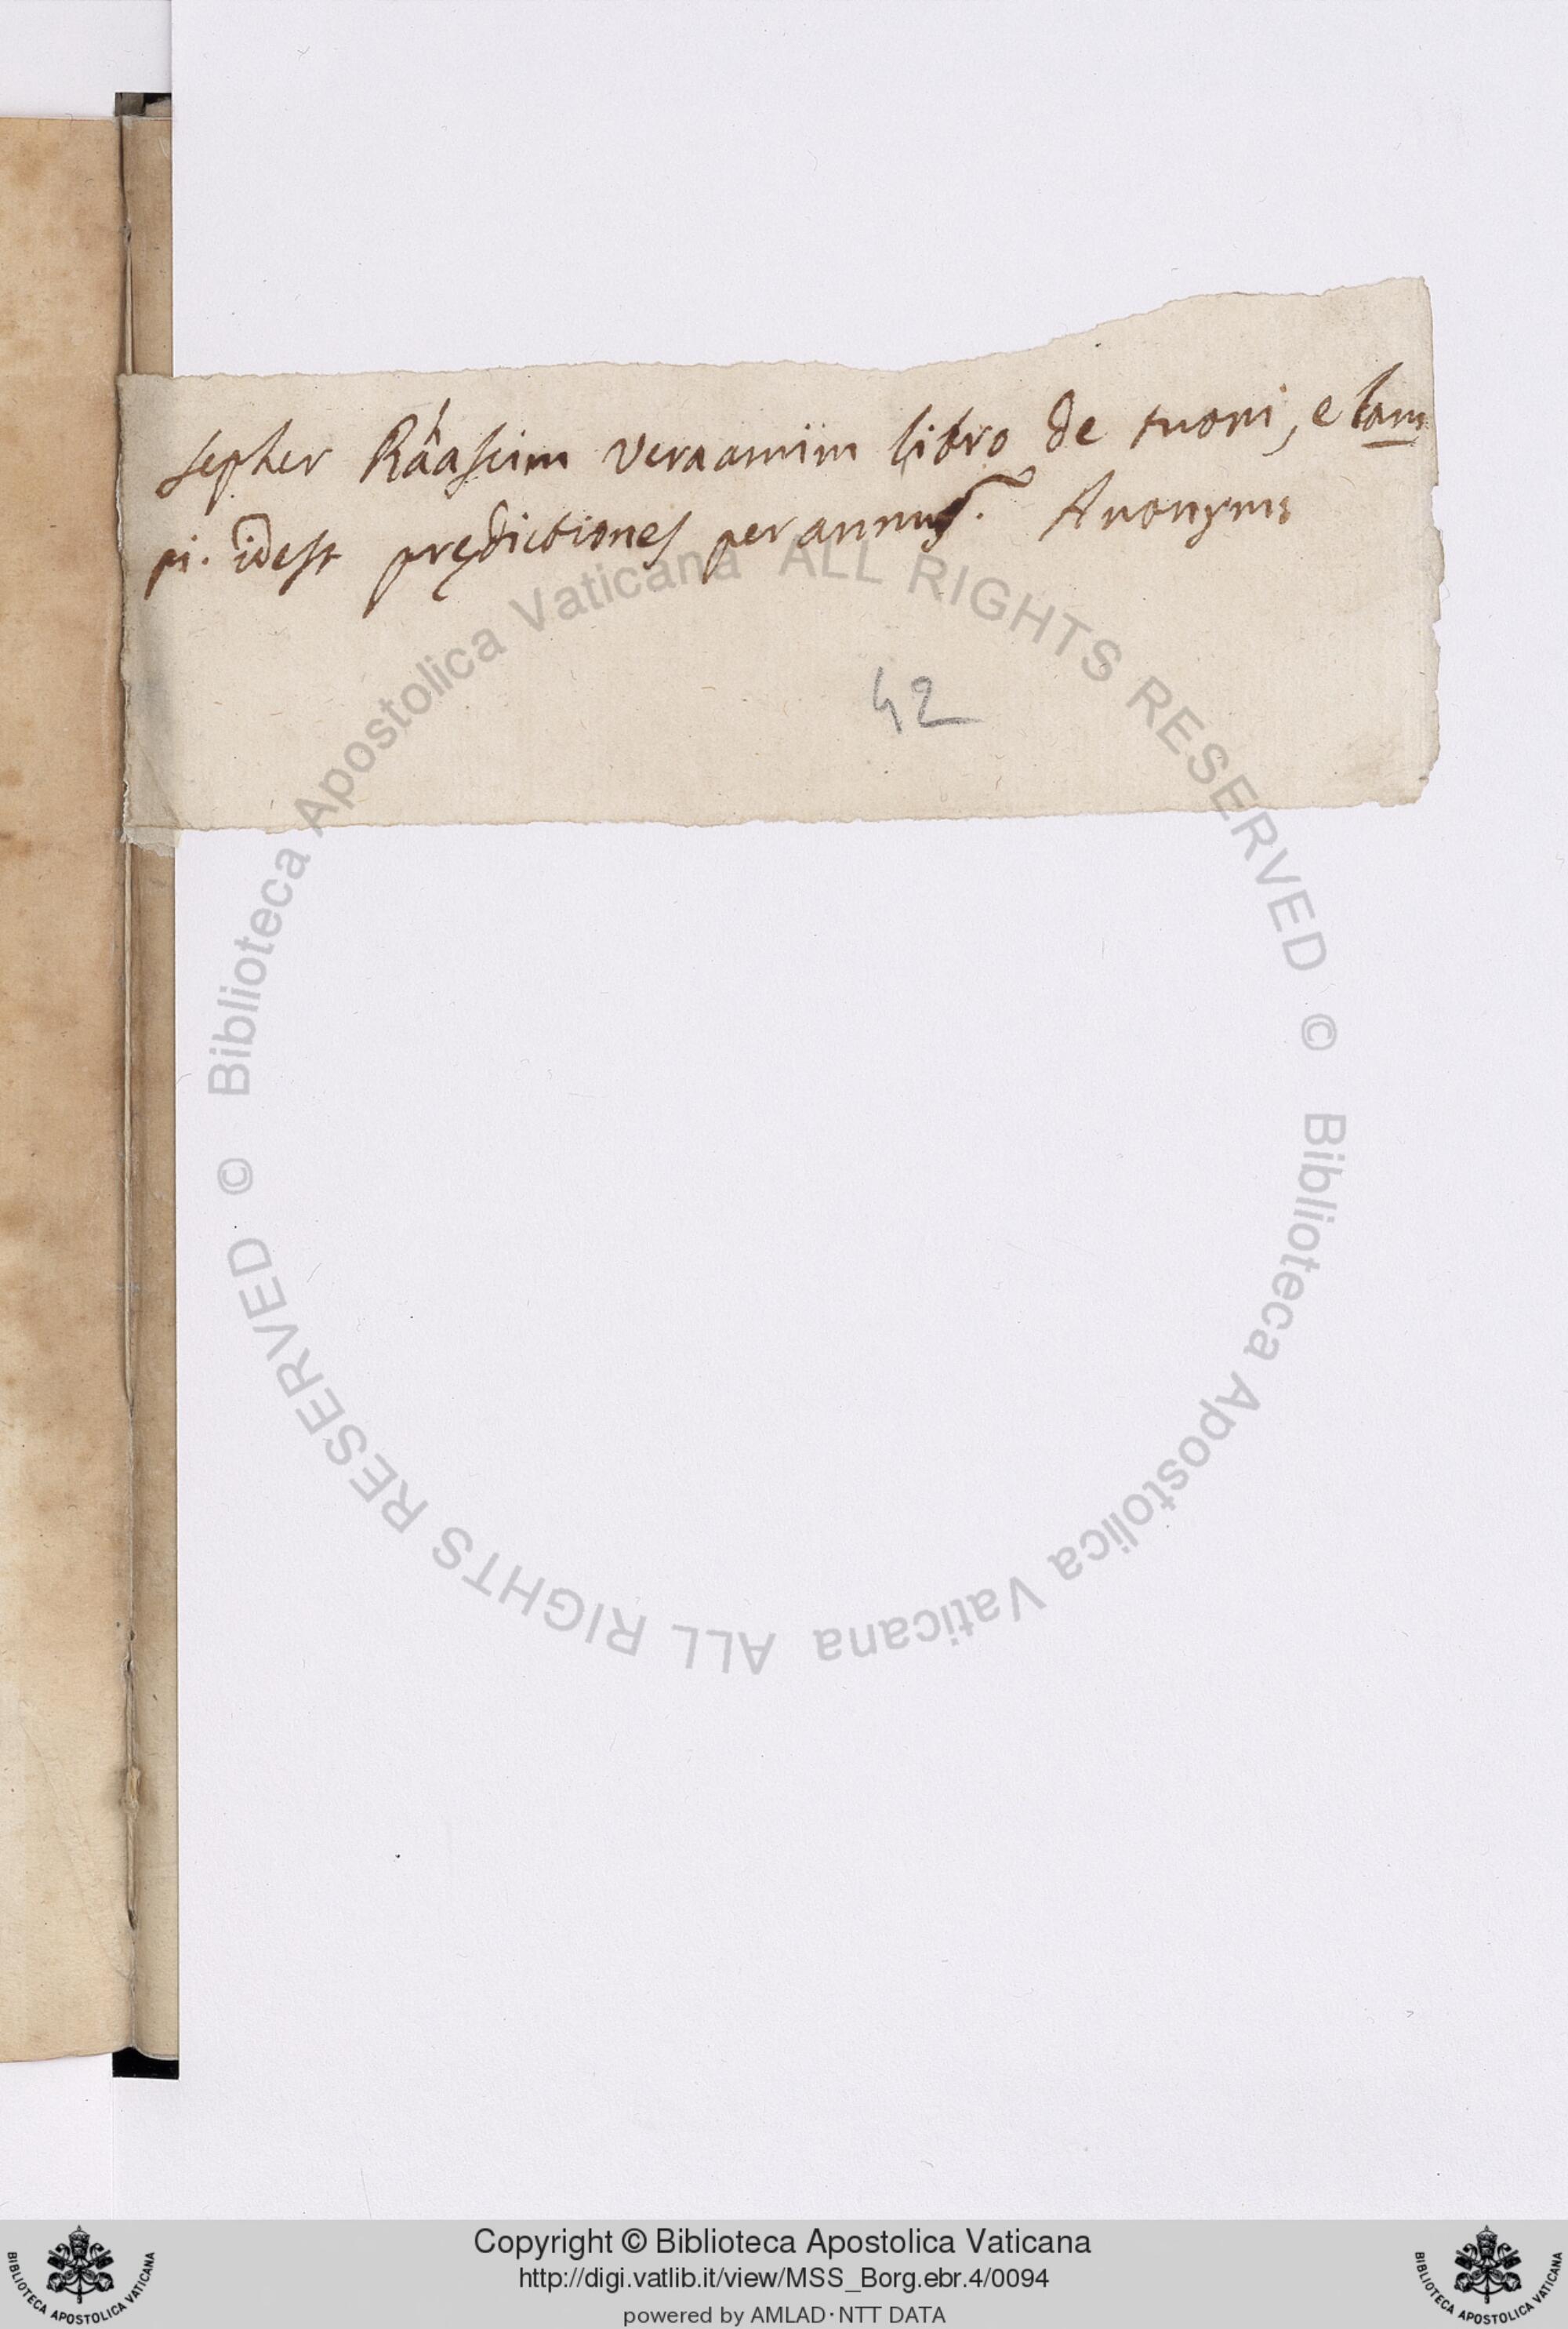 sepher Rahascim veraamim libro de tuoni, e lam
pi. idest prędictiones per annuȝ. Anonymꝰ
42
© Biblioteca Apostolica Vaticana ALL RIGHTS RESERVED © Biblioteca Apostolica Vaticana ALL RIGHTS RESERVED
Copyright © Biblioteca Apostolica Vaticana
http://digi.vatlib.it/view/MSS_Borg.ebr.4/0094
powered by AMLAD·NTT DATA
BIBLIOTECA APOSTOLICA VATICANA
BIBLIOTECA APOSTOLICA VATICANA